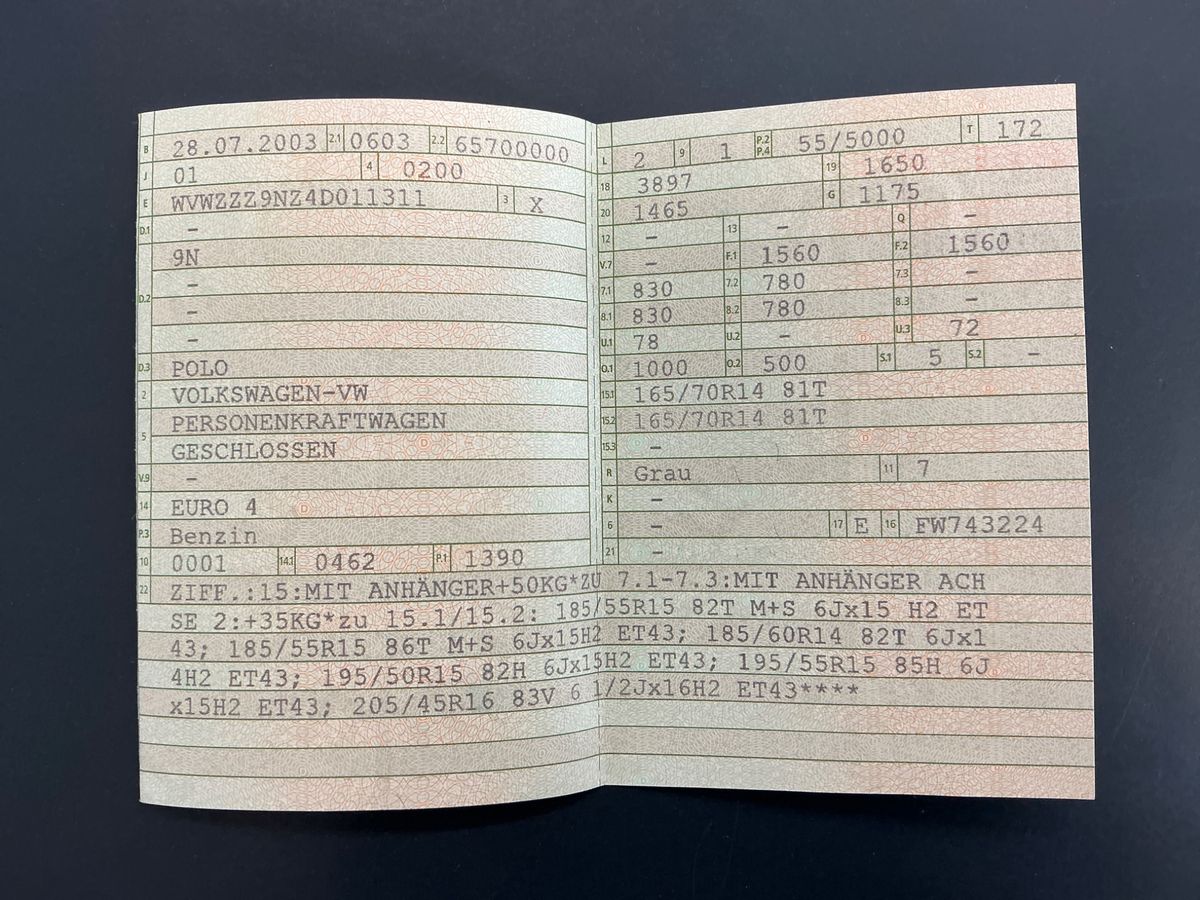 B 28.07.2003 2.1 0603 2.2 65700000
J 01 4 0200
E WVWZZZ9NZ4D011311 3 X
D.1 –
9N
D.2 –
–
–
D.3 POLO
2 VOLKSWAGEN-VW
5 PERSONENKRAFTWAGEN
GESCHLOSSEN
V.9 –
14 EURO 4
P.3 Benzin
10 0001 14.1 0462 P.1 1390
L 2 9 1 P.2 P.4 55/5000 T 172
18 3897 19 1650
20 1465 G 1175
12 – 13 – Q –
V.7 – F.1 1560 F.2 1560
7.1 830 7.2 780 7.3 –
8.1 830 8.2 780 8.3 –
U.1 78 U.2 – U.3 72
O.1 1000 O.2 500 S.1 5 S.2 –
15.1 165/70R14 81T
15.2 165/70R14 81T
15.3 –
R Grau 11 7
K –
6 – 17 E 16 FW743224
21 –
22 ZIFF.:15:MIT ANHÄNGER+50KG*ZU 7.1-7.3:MIT ANHÄNGER ACH
SE 2:+35KG*zu 15.1/15.2: 185/55R15 82T M+S 6Jx15 H2 ET
43; 185/55R15 86T M+S 6Jx15H2 ET43; 185/60R14 82T 6Jx1
4H2 ET43; 195/50R15 82H 6Jx15H2 ET43; 195/55R15 85H 6J
x15H2 ET43; 205/45R16 83V 6 1/2Jx16H2 ET43****